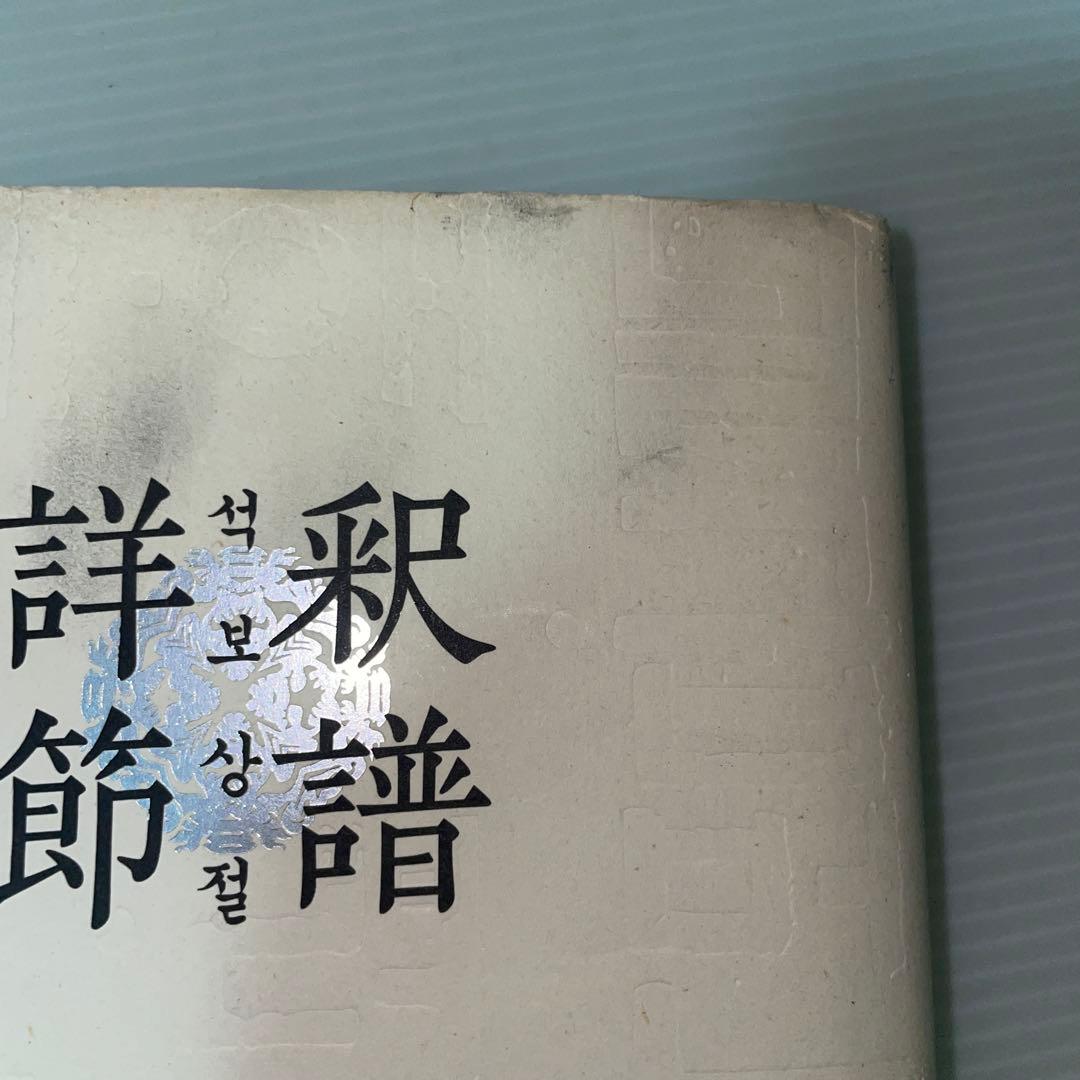 釈譜
석보상절
詳節